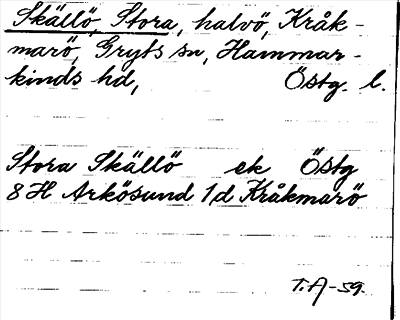 Skällö, Stora, halvö, Kråk-
marö, Gryts sn, Hammar-
kinds hd, Östg. l.
Stora Skällö ek Östg
8H Arkösund 1d Kråkmarö
T.A-59.